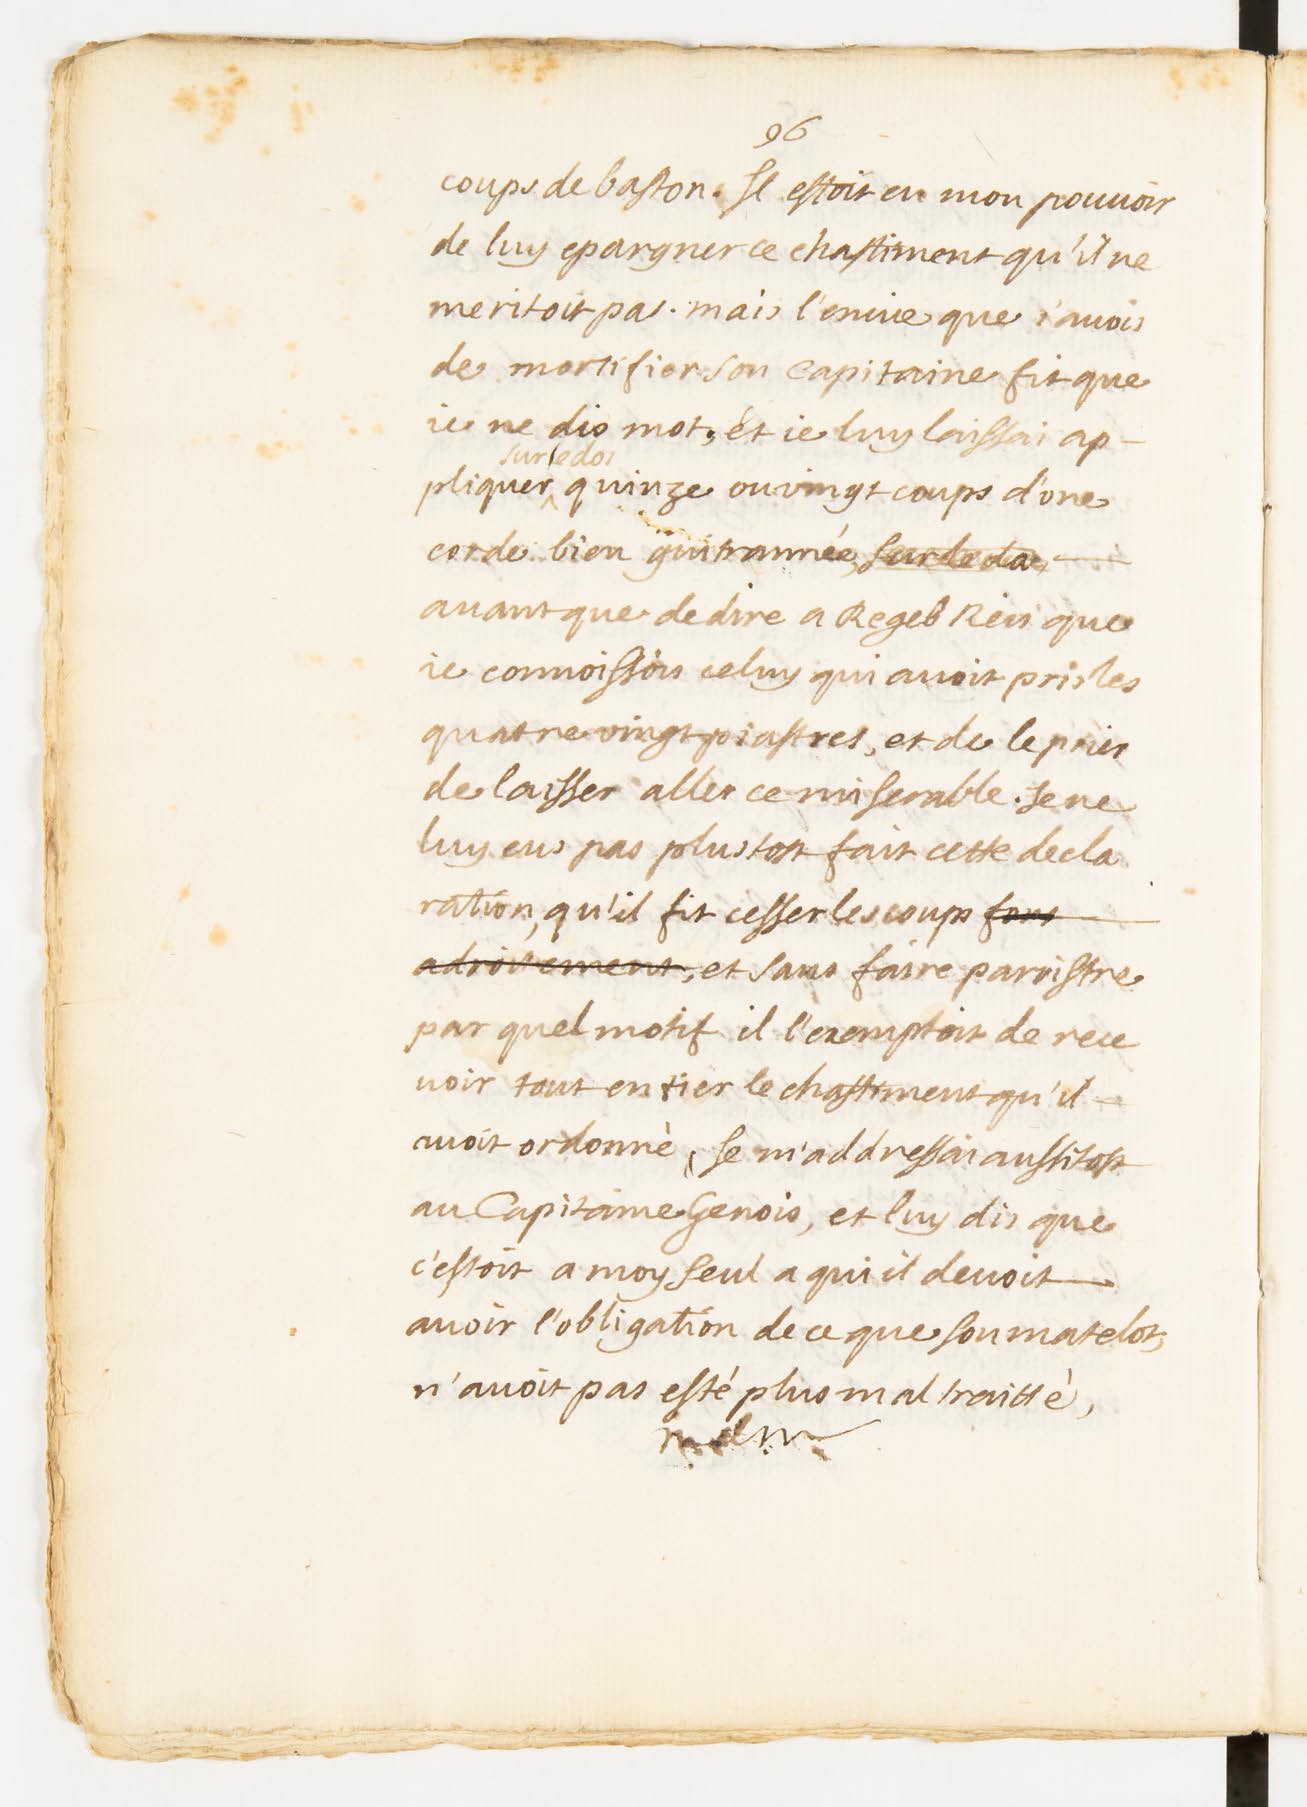 96
coups de baston. Il estoit en mon pouuoir
de luy epargner ce chastiment qu'il ne
meritoit pas. mais l'enuie que i'auois
de mortifier son Capitaine fit que
ie ne dis mot, et ie luy laissai ap-
sur le dos
pliquer quinze ou vingt coups d'une
corde bien guitrannée, sur le dos
auant que de dire a Regeb Reis que
ie connoissois celuy qui auoit pris les
quatre vingt piastres, et de le prier
de laisser aller ce miserable. Je ne
luy eus pas plustost fait cette decla
ration, qu'il fit cesser les coups fort
adroitement, et sans faire paroistre
par quel motif il l'exemptoit de rece
uoir tout entier le chastiment qu'il
auoit ordonné, Je m'addressai aussitost
au Capitaine Genois, et luy dis que
c'estoit a moy seul a qui il deuoit
auoir l'obligation de ce que son matelot,
n'auoit pas esté plus mal traitté,